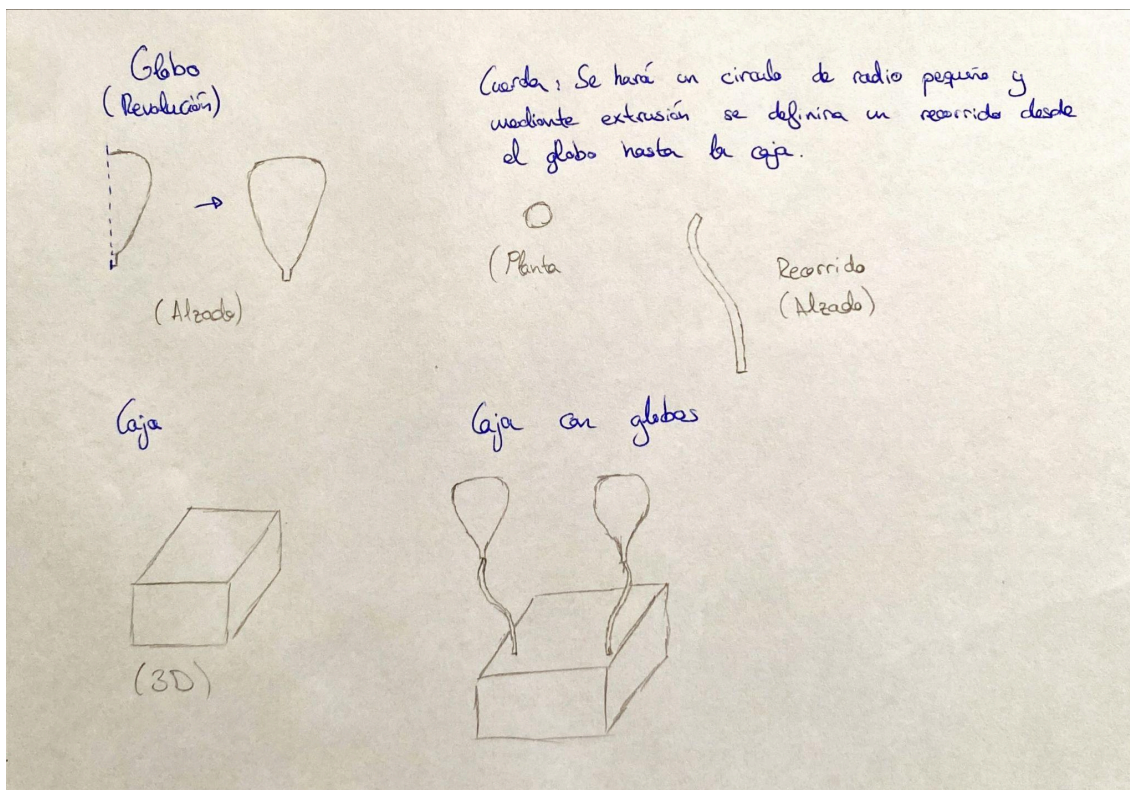 Globo
(Revolución)
Cuerda: Se hará un circulo de radio pequeño y
mediante extrusión se definira un recorrido desde
el globo hasta la caja.
(Planta
Recorrido
(Alzado)
(Alzado)
Caja
Caja con globos
(3D)